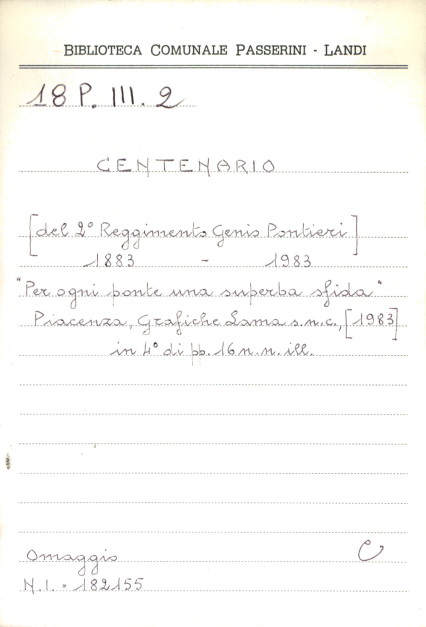 BIBLIOTECA COMUNALE PASSERINI - LANDI
18 P. III. 2
CENTENARIO
[del 2° Reggimento Genio Pontieri]
1883 - 1983
"Per ogni ponte una superba sfida"
Piacenza, Grafiche Lama s.n.c., [1983]
in 4° di pp. 16 n.n. ill.
Omaggio C
N.I. = 182155